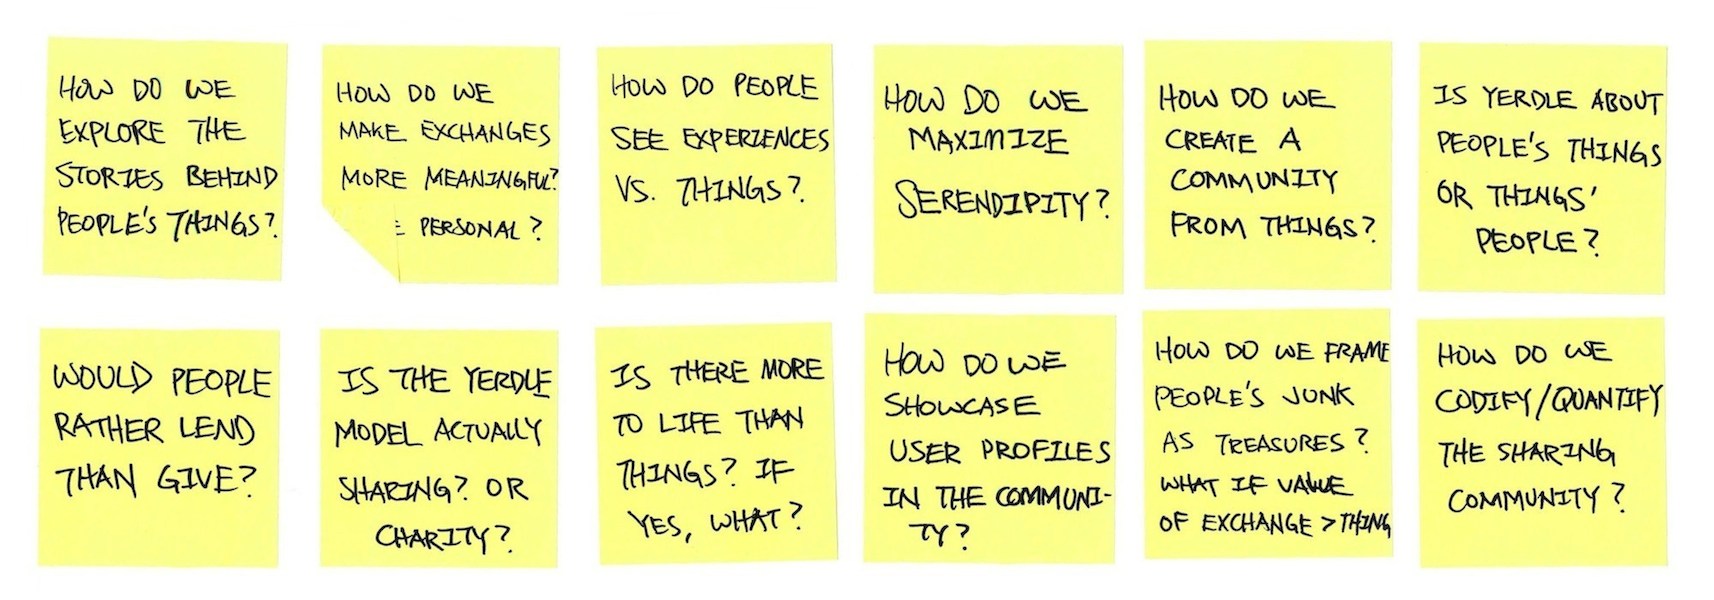 HOW DO WE
EXPLORE THE
STORIES BEHIND
PEOPLE'S THINGS?
HOW DO WE
MAKE EXCHANGES
MORE MEANINGFUL?
PERSONAL?
HOW DO PEOPLE
SEE EXPERIENCES
VS. THINGS?
HOW DO WE
MAXIMIZE
SERENDIPITY?
HOW DO WE
CREATE A
COMMUNITY
FROM THINGS?
IS YERDLE ABOUT
PEOPLE'S THINGS
OR THINGS'
PEOPLE?
WOULD PEOPLE
RATHER LEND
THAN GIVE?
IS THE YERDLE
MODEL ACTUALLY
SHARING? OR
CHARITY?
IS THERE MORE
TO LIFE THAN
THINGS? IF
YES, WHAT?
HOW DO WE
SHOWCASE
USER PROFILES
IN THE COMMUNI-
TY?
HOW DO WE FRAME
PEOPLE'S JUNK
AS TREASURES?
WHAT IF VALUE
OF EXCHANGE > THING
HOW DO WE
CODIFY/QUANTIFY
THE SHARING
COMMUNITY?